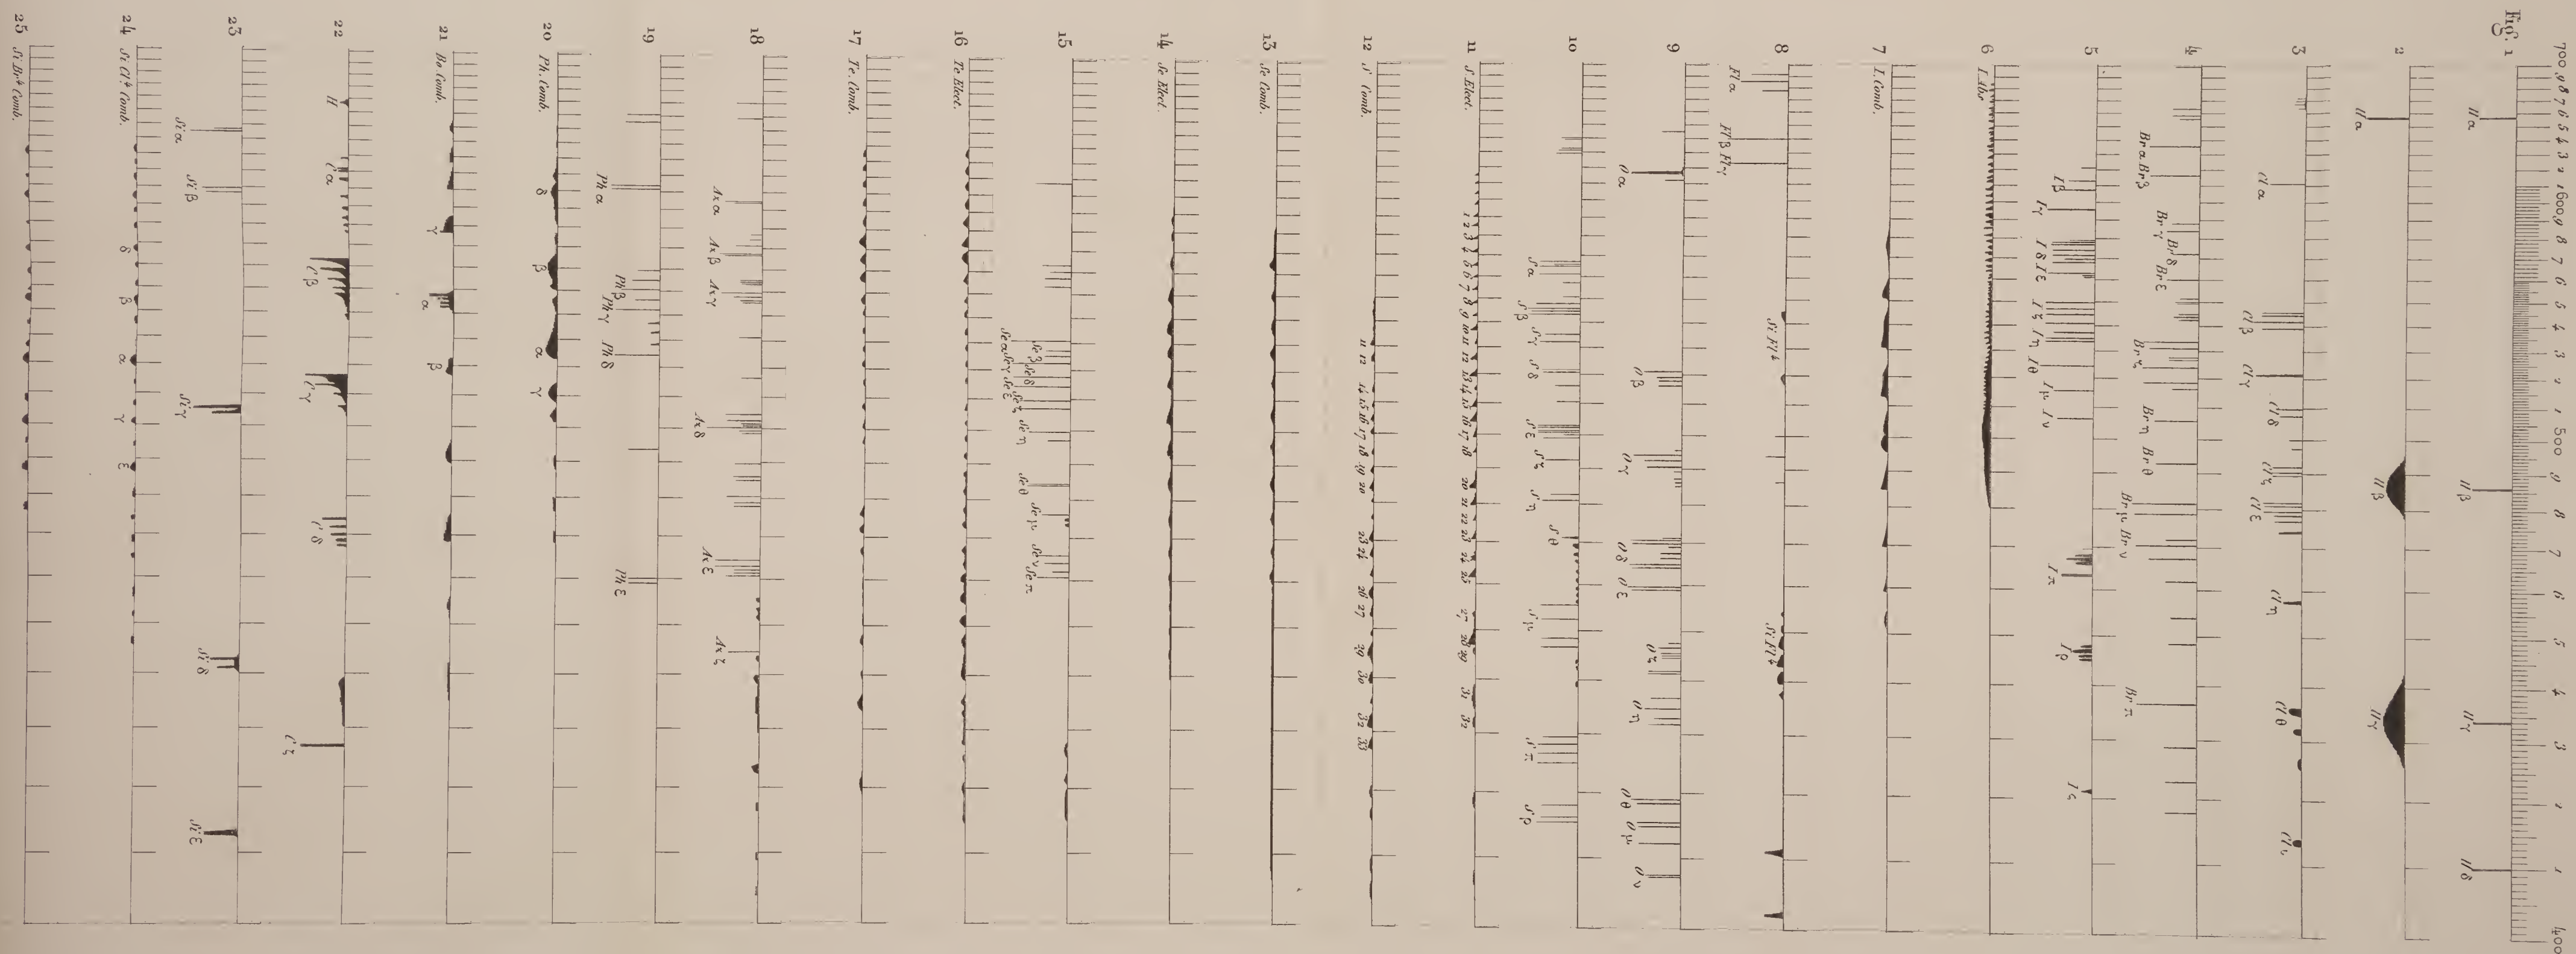 Fig. 1
700 9 8 7 6 5 4 3 2 1 600 9 8 7 6 5 4 3 2 1 500 9 8 7 6 5 4 3 2 1 400
Hα Hβ Hγ Hδ
2
Hα Hβ Hγ
3
Cl α Cl β Cl γ Cl δ Cl ζ Cl ε Cl η Cl θ Cl ι
4
Br α Br β Br γ Br δ Br ε Br ζ Br η Br θ Br μ Br ν Br π
5
I β I γ I δ I ε I ζ I η I θ I μ I ν I π I ρ I ς
6
I. Abs
7
I. Comb.
8
Fl α Fl β Fl γ Si Fl 4 Si Fl 4
9
O α O β O γ O δ O ε O ζ O η O θ O μ O ν
10
S α S β S γ S δ S ε S ζ S η S θ S μ S π S ρ
11
S Elect.
1 2 3 4 5 6 7 8 9 10 11 12 13 14 15 16 17 18 20 21 22 23 24 25 27 28 29 31 32
12
S Comb.
11 12 14 15 16 17 18 19 20 23 24 26 27 29 30 32 33
13
Se Comb.
14
Se Elect.
15
Se α Se β Se γ Se δ Se ε Se ζ Se η Se θ Se μ Se ν Se π
16
Te Elect.
17
Te. Comb.
18
As α As β As γ As δ As ε As ζ
19
Ph α Ph β Ph γ Ph δ Ph ε
20
Ph. Comb.
δ β α γ
21
Bo Comb.
γ α β
22
H C α C β C γ C δ C ζ
23
Si α Si β Si γ Si δ Si ε
24
Si Cl 4 Comb.
δ β α γ ε
25
Si Br 4 Comb.